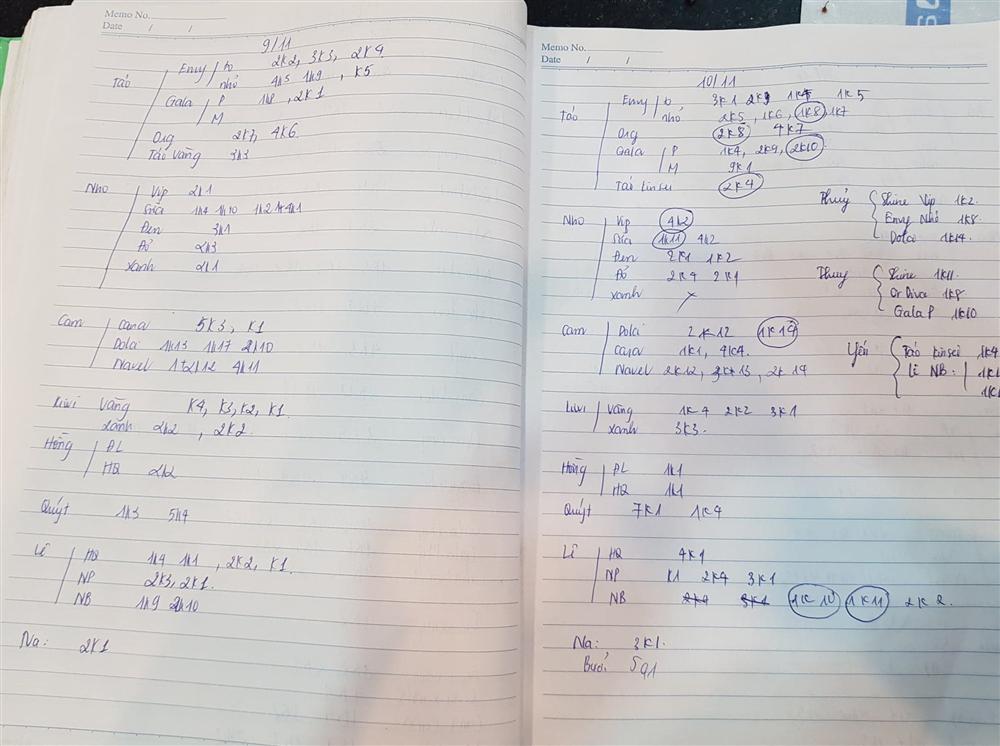 Memo No.
Date / /
9/11
Táo Envy to 2K2, 3K3, 2K4
nhỏ 4K5 1K9, K5
Gala P 1K8, 2K1
M
Org 2K7, 4K6
Táo vàng 3K3
Nho Vip 2K1
Sữa 1K4 1K10 1K2
Đen 3K1
Đỏ 2K3
Xanh 2K1
Cam Cara 5K3, K1
Dola 1K13 1K17 2K10
Navel 2K12 4K11
Kiwi Vàng K4, K3, K2, K1
Xanh 2K2, 2K2
Hồng ĐL
HQ 2K2
Quýt 1K3 5K4
Lê HQ 1K4 1K1, 2K2, K1.
NP 2K3, 2K1.
NB 1K9 2K10
Na: 2K1
Memo No.
Date / /
10/11
Táo Envy to 3K1 1K5
nhỏ 2K5, 1K6, 1K8, 1K7
Org 2K8 4K7
Gala P 1K4, 2K9, 2K10
M 9K1
Táo Kinsei 2K4
Thuỷ Shine Vip 1K2.
Envy Nhỏ 1K8.
Dola 1K14.
Nho Vip 4K2
Sữa 1K11 4K2
Đen 2K1 1K2
Đỏ 2K4 2K1
Xanh x
Thuỷ Shine 1K11.
Or Diva 1K8.
Gala P 1K10
Cam Dola 2K12 1K14
Cara 1K1, 4K4.
Navel 2K12, 3K13, 2K14
Yến Táo Kinsei 1K4
Lê NB: 1K1
1K1
Kiwi Vàng 1K4 2K2 3K1
Xanh 3K3.
Hồng ĐL 1K1
HQ 1K1
Quýt 7K1 1K4
Lê HQ 4K1
NP K1 2K4 3K1
NB 1K10 1K11 2K2
Na: 3K1.
Bưởi 5q1